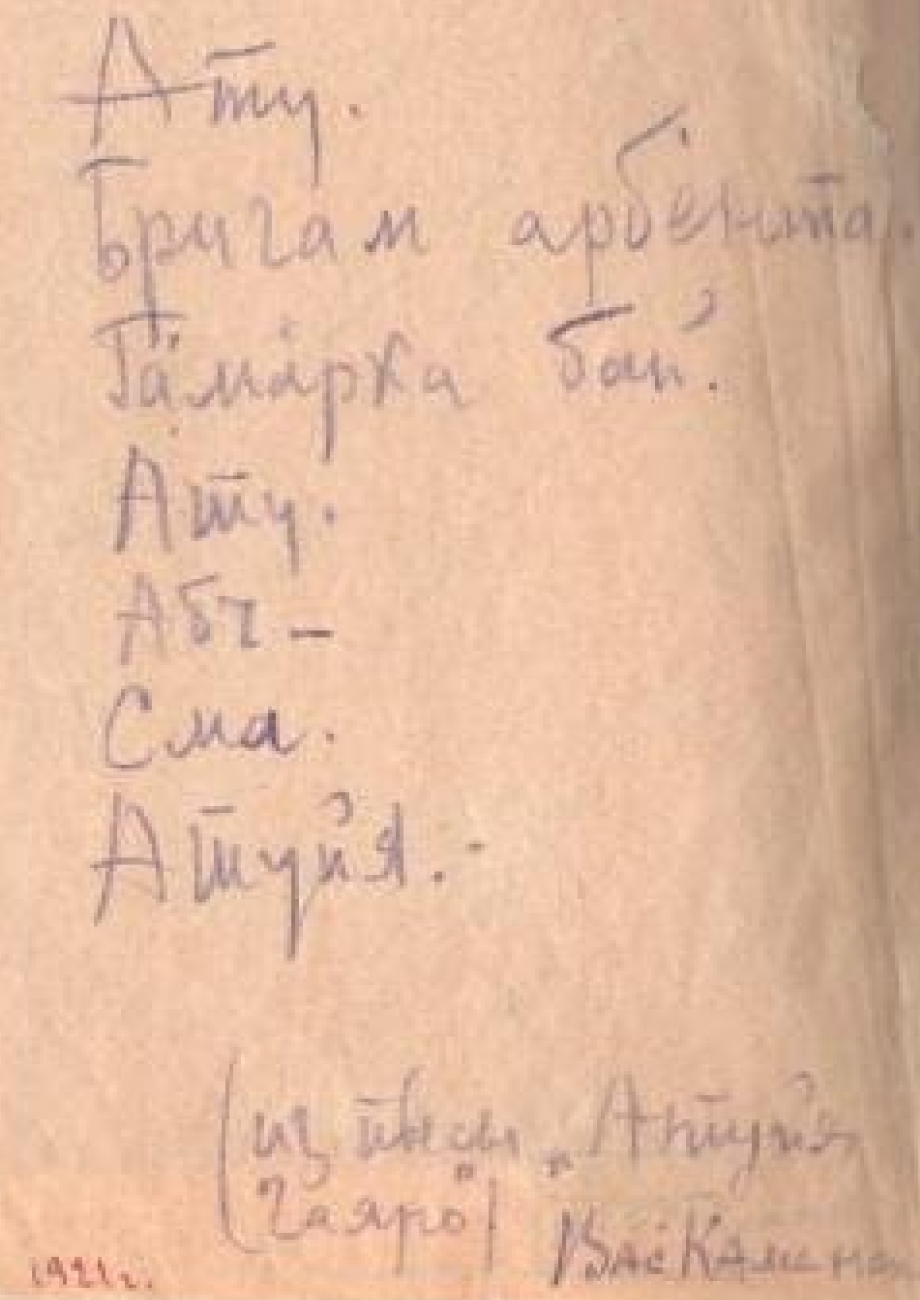 Ату.
Бригам арбента.
Гамарка бай.
Ату.
Абч –
Сма.
Атуйя.
(из пьесы „Атуйя
Гаяро")
Вас Каменс
1921 г.